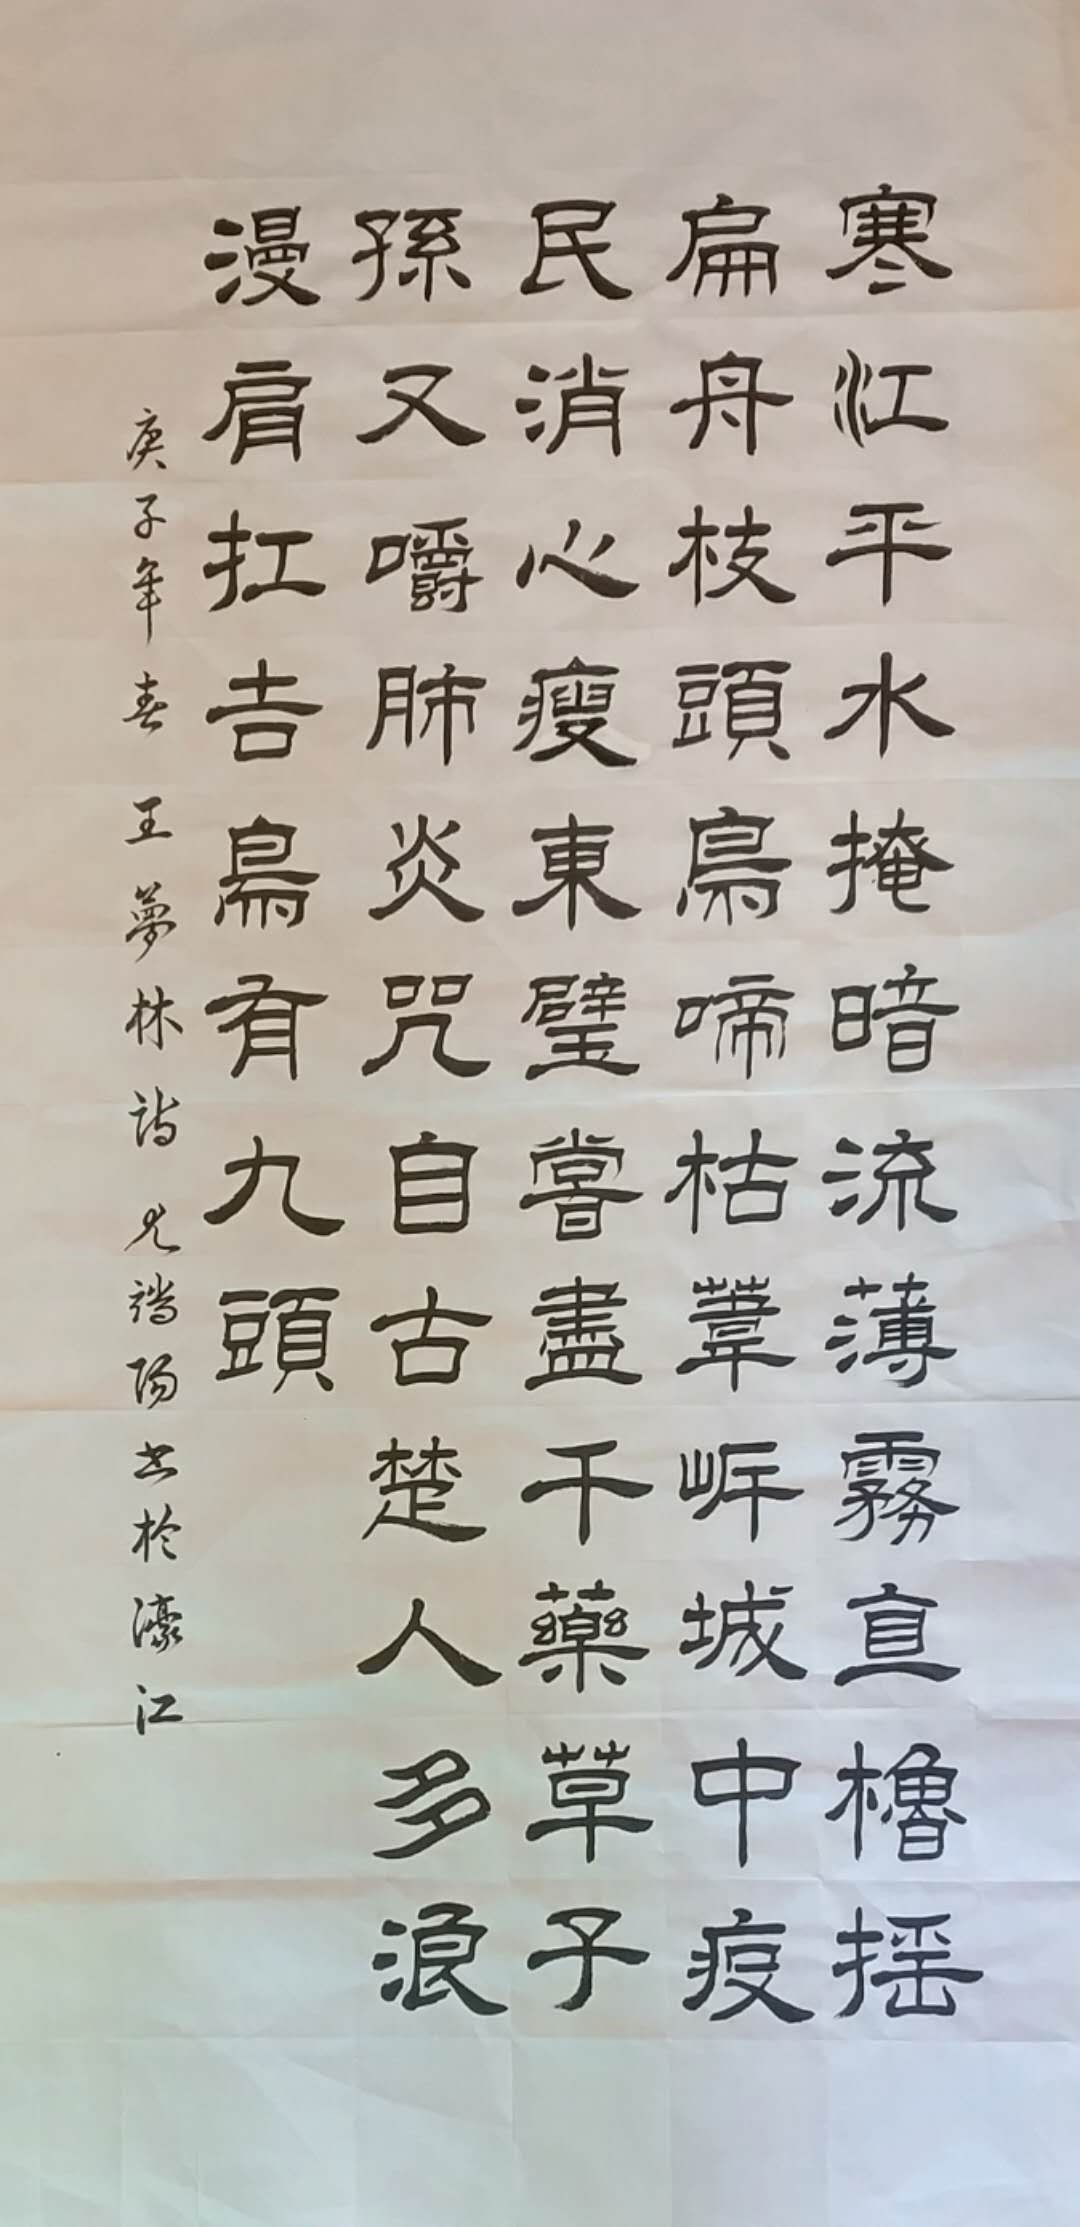 寒江平水掩暗流薄霧直櫓摇
扁舟枝頭鳥啼枯葦岸城中疫
民消心瘦東璧嘗盡千藥草子
孫又嚼肺炎咒自古楚人多浪
漫肩扛吉鳥有九頭
庚子年春 王夢林詩 陽書於濠江